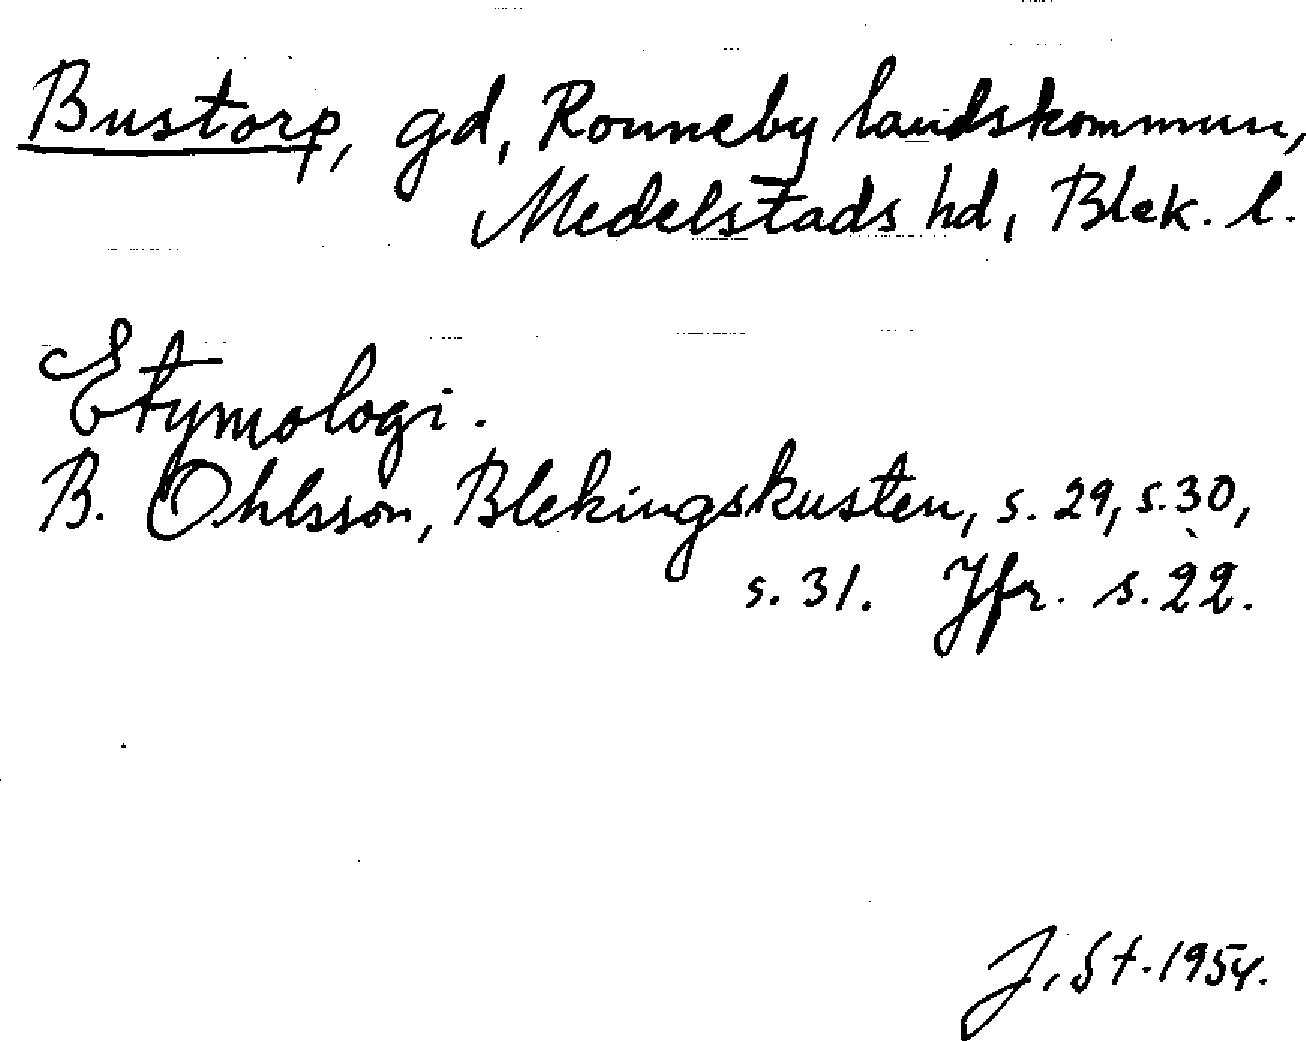 Bustorp, gd, Ronneby landskommun,
Medelstads hd, Blek. l.
Etymologi.
B. Ohlsson, Blekingskusten, s. 29, s. 30,
s. 31. Jfr. s. 22.
J. St. 1954.